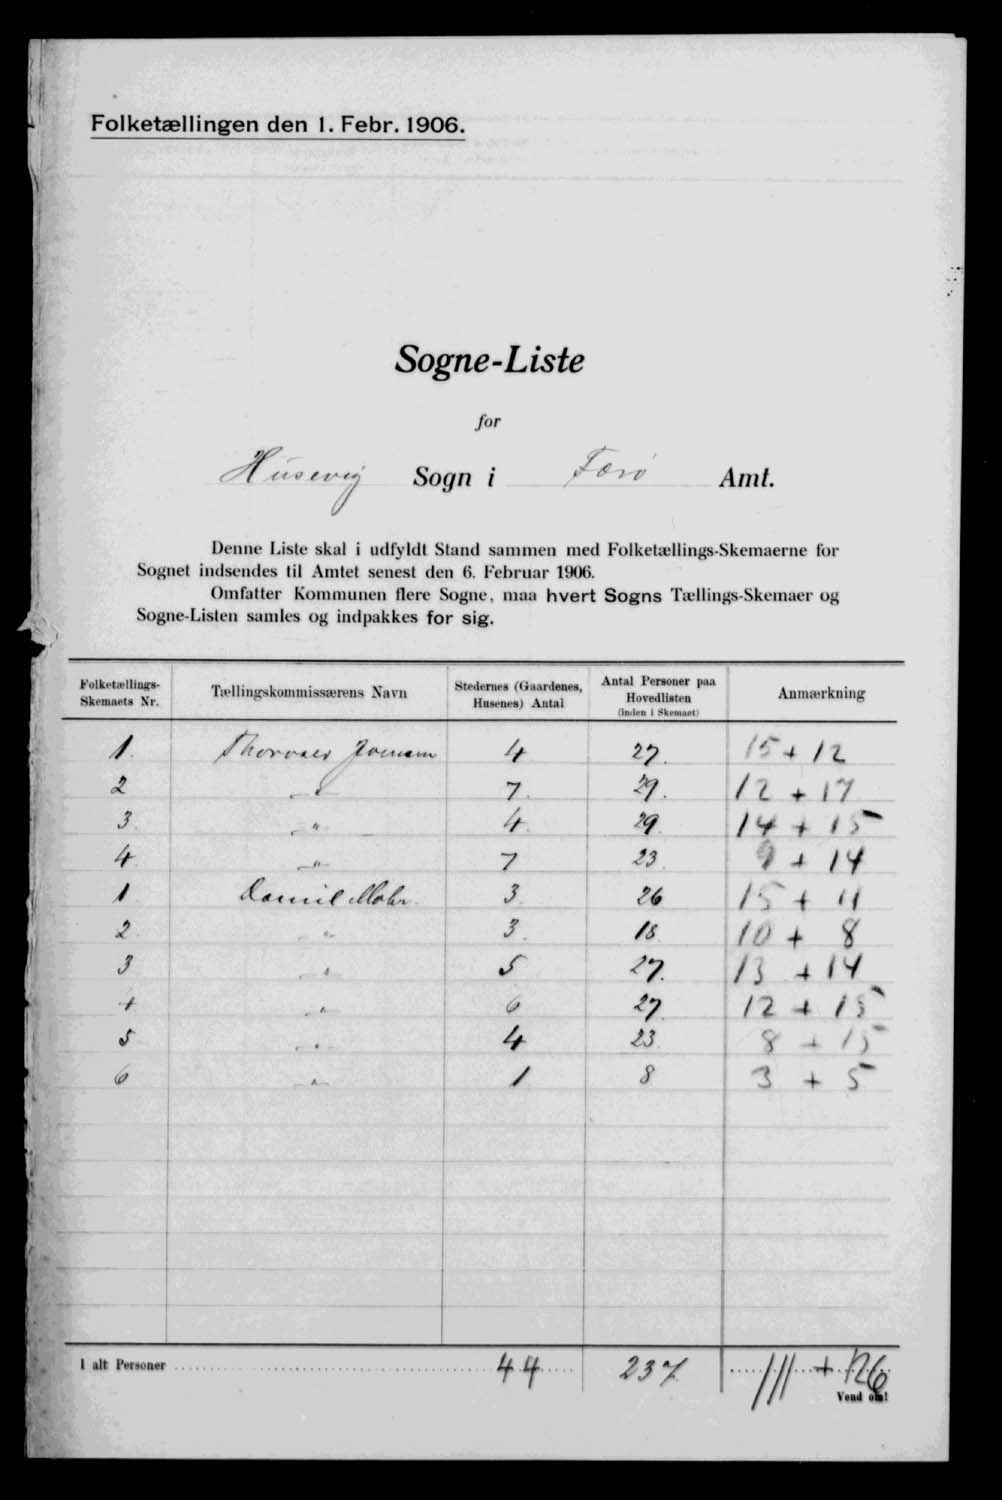 Folketællingen den 1. Febr. 1906.
Sogne-Liste
for
Husevig Sogn i Færö Amt.
Denne Liste skal i udfyldt Stand sammen med Folketællings-Skemaerne for
Sognet indsendes til Amtet senest den 6. Februar 1906.
Omfatter Kommunen flere Sogne, maa hvert Sogns Tællings-Skemaer og
Sogne-Listen samles og indpakkes for sig.
Folketællings-Skemaets Nr. Tællingskommissærens Navn Stedernes (Gaardenes, Husenes) Antal Antal Personer paa Hovedlisten (inden i Skemaet) Anmærkning
1. Thorvald 4 27. 15 + 12
2 -"- 7. 29. 12 + 17
3. -"- 4. 29. 14 + 15
4. -"- 7 23 9 + 14
1. Daniel Mohr. 3. 26 15 + 11
2. -"- 3. 18. 10 + 8
3 -"- 5 27. 13 + 14
4 -"- 6 27. 12 + 15
5 -"- 4 23. 8 + 15
6 -"- 1 8 3 + 5
I alt Personer 44 237 111 + 126
Vend om!